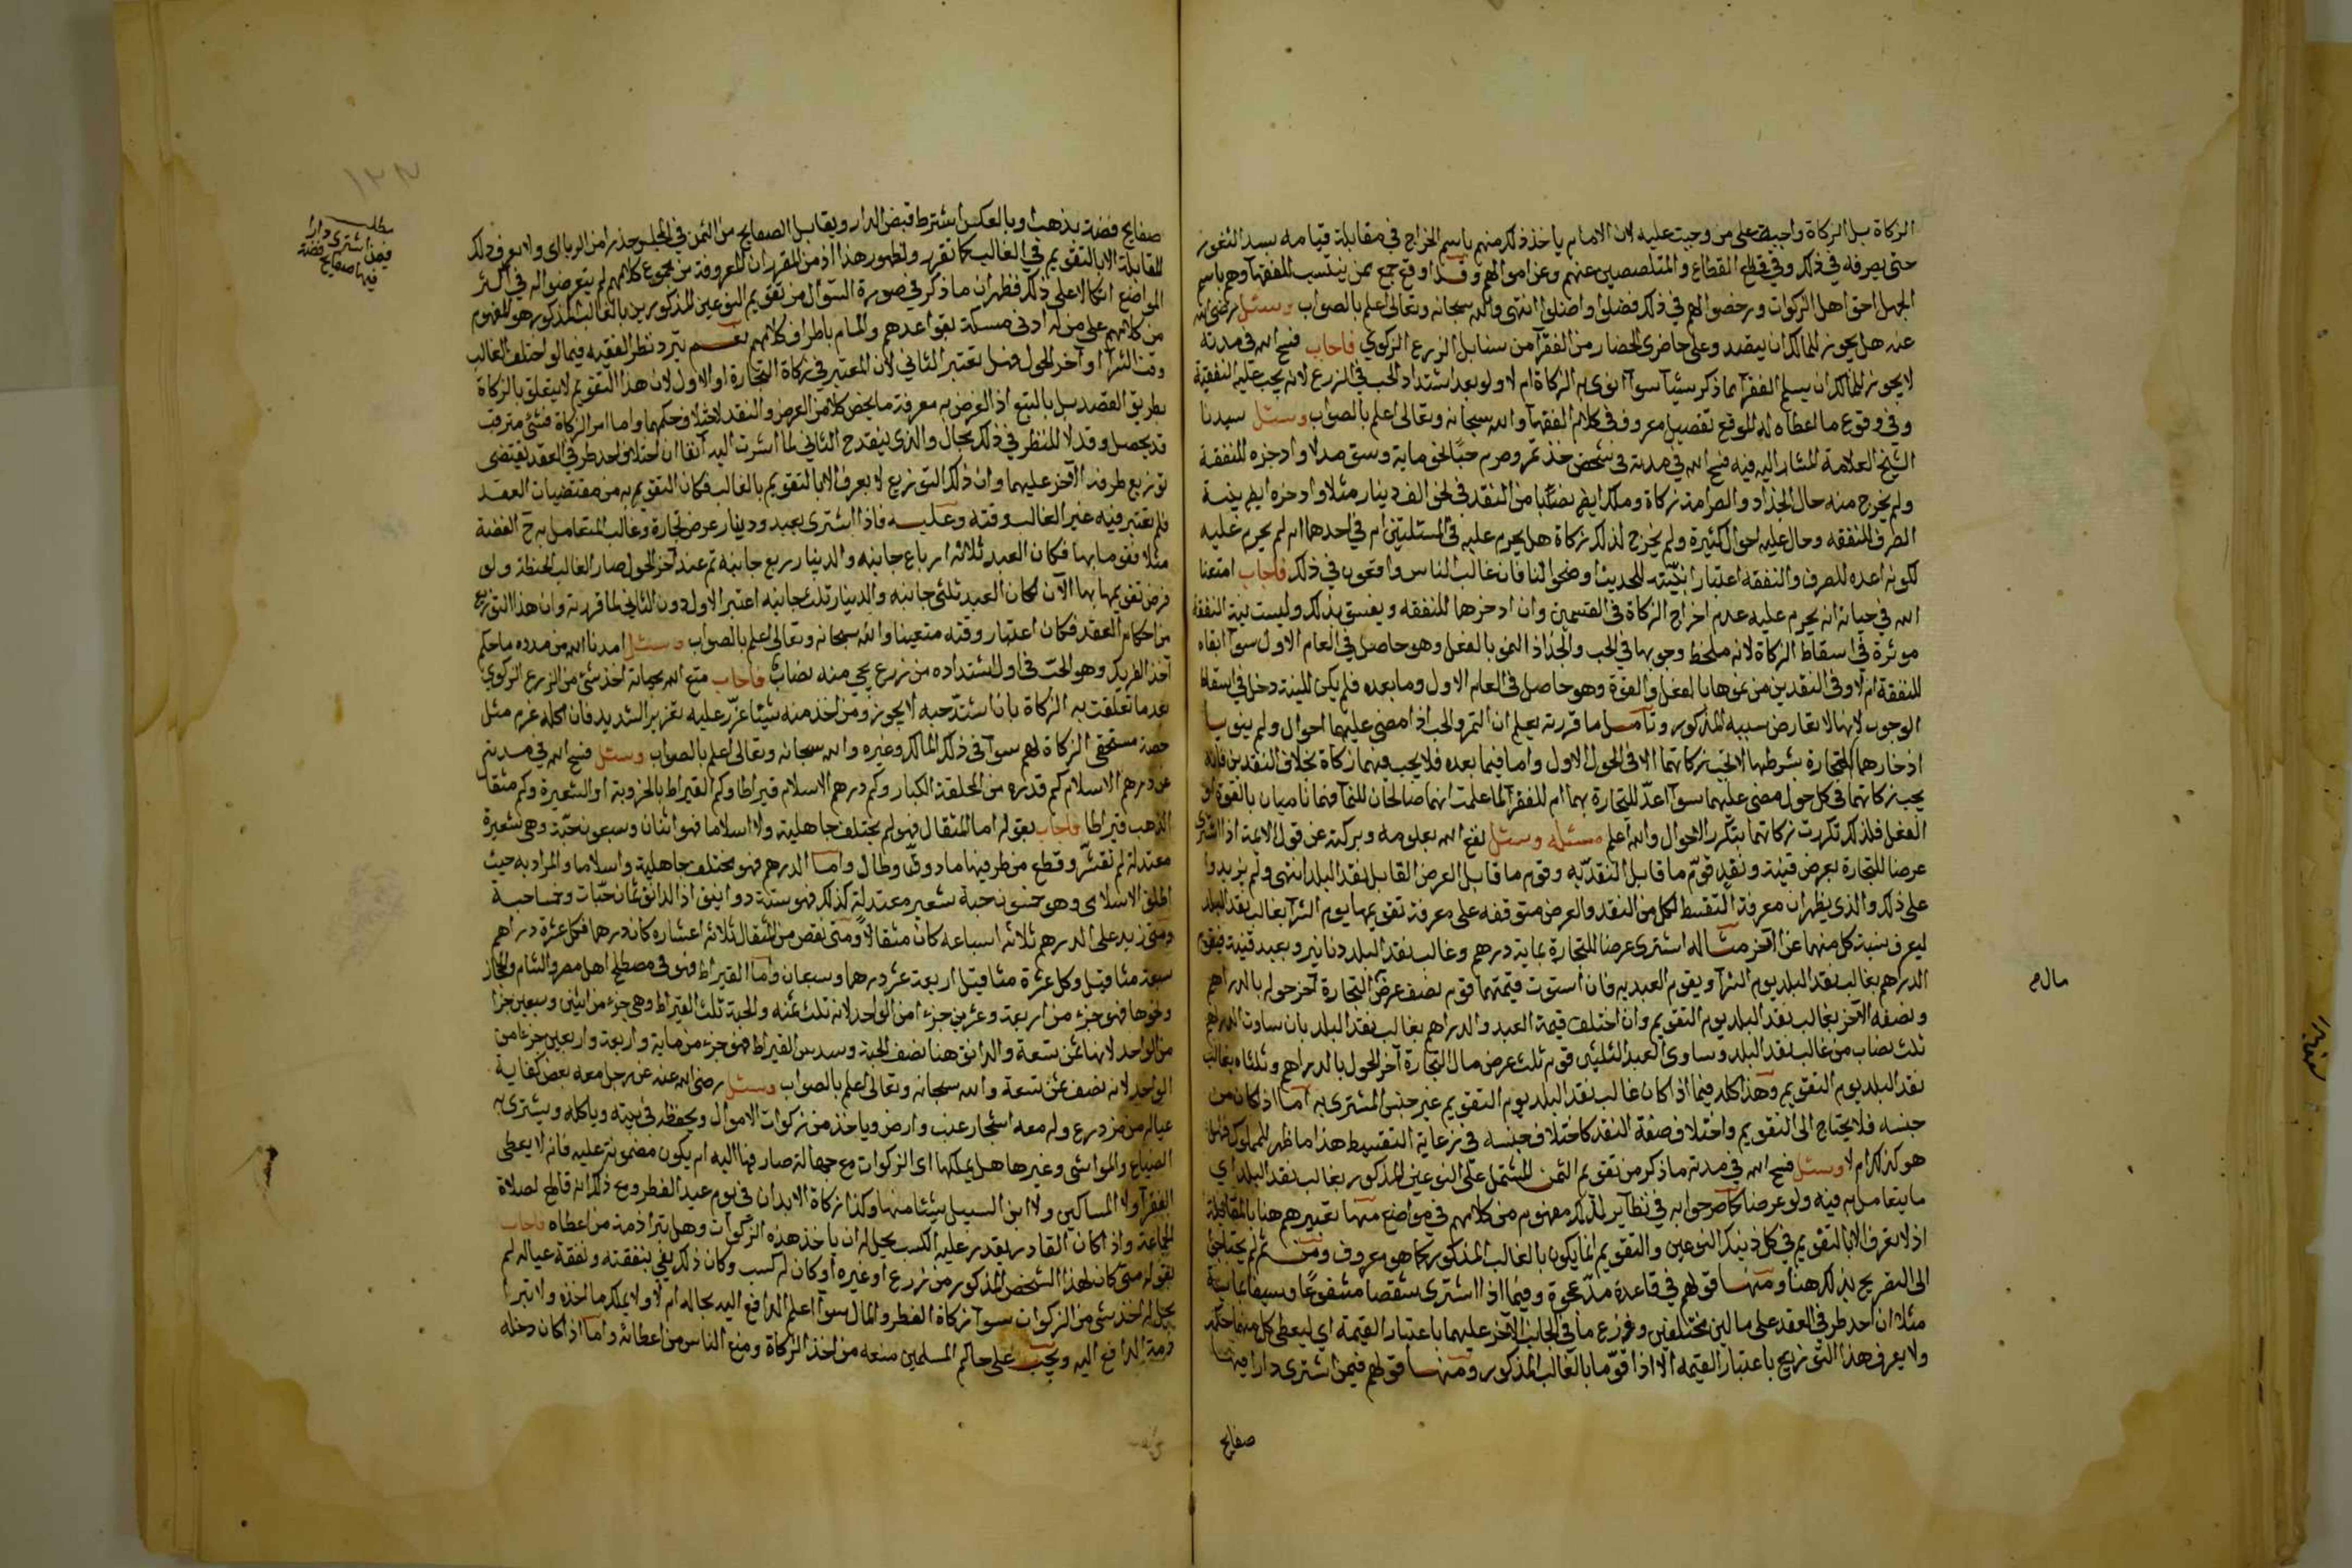 الزكاة بل الزكاة واجبة على من وجبت عليه لان الامام ياخذ ذلك منهم باسم الخراج في مقابلة قيامه بسد الثغور
حتى يصرفه في ذلك وفي قطاع المتلصصين عنهم وعن اموالهم وقد اوقع جمع ممن ينتسب للفقهآ وهم باسم
الجهل احق اهل الزكوات ورخصوا لهم في ذلك فضلوا واضلوا انتهى والله سبحانه وتعالى اعلم بالصواب وسئل رضي الله
عنه هل يجوز للمالك ان يبعد وعلى حاضري الحضار من الفقرآ من سنابل الزرع الزكوي فاجاب فسح الله في مدته
لا يجوز للمالك ان يسلم الفقرآ مما ذكر شيئا سوآ انوى به الزكاة ام لا ولو بعد اشتداد الحب في الزرع لانه يجب عليه التنقية
وفي وقوع ما اعطاه له الموقع تفصيل معروف في كلام الفقهآ والله سبحانه وتعالى اعلم بالصواب وسئل سيدنا
الشيخ العلامة المشار اليه فيه فسح الله في مدته في شخص جذ تمر وصرم حبا لخو ماية وستق مدلا وادخره للنفقة
ولم يخرج منه حال الجذاذ والصرامة زكاة وملك ايضا نصابا من النقد في نحو الف دينار مثلا وادخره ايضا بنية
الصرف للنفقة وحال عليه احوال كثيرة ولم يخرج لذلك زكاة هل يحرم عليه في المسئلتين ام في احدهما ام لم يحرم عليه
لكونه اعده للصرف والنفقة اعتبارا بنيته للحديث اوضحوا لنا فان غالب الناس واقعون في ذلك فاجاب امتعنا
الله في حياته انه يحرم عليه عدم اخراج الزكاة في القسمين وان ادخرها للنفقة ويفسق بذلك وليست نية النفقة
موثرة في اسقاط الزكاة لانه ملحظ وجوبها في الحب والجذاذ النمو بالفعل وهو حاصل في العام الاول سوآ ابقاه
للنفقة ام لا وفي النقدين من نموها بالفعل والقوة وهو حاصل في العام الاول وما بعده فلم يكن للنية دخل في اسقاط
الوجوب لانها لا تعارض سببه المذكور وتامل ما قررته يعلم ان التمر والحب اذا مضى عليهما احوال ولم ينو بها
ادخارهما للتجارة بشرطها لا تجب زكاتهما الا في الحول الاول واما فيما بعده فلا يجب فيهما زكاة بخلاف النقدين فانه
يجب زكاتهما في كل حول مضى عليهما سوآ اعد للتجارة بهما ام للفقرآ لما علمت انهما صالحان للنمآ فهما ناميان بالقوة او
الفعل فلذلك تكررت زكاتهما بتكرر الاحوال والله اعلم مسئلة وسئل نفع الله بعلومه وبركته عن قول الايمة اذا اشترى
عرضا للتجارة بعرض قنية ونقد قوم ما قابل النقد به وقوم ما قابل العرض القابل بنقد البلد انتهى ولم يزيدوا
على ذلك والذي يظهر ان معرفة التقسيط لكل من النقد والعرض متوقفه على معرفة تقويمها يوم الشرآ بغالب نقد البلد
ليعرف نسبة كل منهما عن الآخر مثاله اشترى عرضا للتجارة بماية درهم وغالب نقد البلد دنانير وبعبد قنية فيقوم
الدرهم بغالب نقد البلد يوم الشرآ ويقوم العبد به فان استوت قيمتهما قوم نصف عرض التجارة آخر حوله بالدراهم
ونصفه الآخر بغالب نقد البلد يوم التقويم وان اختلف قيمة العبد والدراهم بغالب نقد البلد بان ساوت الدراهم
ثلث نصاب من غالب نقد البلد وساوى العبد الثلثين قوم ثلث عرض مال التجارة آخر الحول بالدراهم وثلثاه بغالب
نقد البلد يوم التقويم وهذا كله فيما اذا كان غالب نقد البلد يوم التقويم غير جنس المشترى به اما اذا كان من
جنسه فلا يحتاج الى التقويم واختلاف صفة النقد كاختلاف جنسه في رعاية التقسيط هذا ما ظهر للمملوك فهل
هو كذلك ام لا وسئل فسح الله في مدته ما ذكر من تقويم الثمن المشتمل على النوعين المذكور بغالب نقد البلد اي
ما يتعامل به فيه ولو عرضا كما صرحوا به في نظاير لذلك مفهوم من كلامهم في مواضع منها تعبيرهم هنا بالمقابلة
اذ لا تعرف الا بالتقويم في كل ذينك النوعين والتقويم انما يكون بالغالب المذكور كما هو معروف ومن ثم لم يحتاجوا
الى التصريح بذلك هنا ومنها قولهم في قاعدة مد عجوة وفيما اذا اشترى شقصا مشفوعا وسيفا
مثلا ان احد طرفي العقد على مالين مختلفين وزع ما في الجانب الآخر عليهما باعتبار القيمة اي ليعطى كل منهما حكمه
ولا يعرف هذا التوزيع باعتبار القيمة الا اذا قوما بالغالب المذكور ومنها قولهم فيمن اشترى دارا فيها
صفايح
مال م
صفايح فضة بذهب او بالعكس اشترط قبض الدار ويقابل الصفايح من الثمن في المجلس حذرا من الربا اي ولا يعرف ذلك
المقابلة الا بالتقويم في الغالب كما تقرر ولظهور هذا اذ من المقرر ان المعروفة من مجموع كلامهم لم يتعرضوا له في اكثر
المواضع اتكالا على ذلك فظهر ان ما ذكر في صورة السؤال من تقويم النوعين المذكورين بالغالب المذكور هو المفهوم
من كلامهم على من له ادنى مسكة بقواعدهم والمام باطراف كلامهم نعم يتردد نظر الفقيه فيما لو اختلف الغالب
وقت الشرآ وآخر الحول فهل تعتبر الثاني لان المعتبر في زكاة التجارة او الاول لان هذا التقويم لا يتعلق بالزكاة
بطريق القصد بل بالتبع اذ الغرض به معرفة ما يخص كلا من العرض والنقد لاختلاف حكمهما واما امر الزكاة فشئ مترقب
قد يحصل وقد لا للنظر في ذلك مجال والذي ينقدح الثاني لما اشرت اليه آنفا ان اختلاف احد طرفي العقد يقتضى
توزيع طرفه الآخر عليهما وان ذلك التوزيع لا يعرف الا بالتقويم بالغالب فكان التقويم به من مقتضيات العقد
فلم يعتبر فيه غير الغالب وقته وعليه فاذا اشترى بعبد ودينار عرض تجارة وغالب المتعامل به ح الفضة
مثلا فقوما بها فكان العبد ثلاثة ارباع جانبه والدينار ربع جانبه ثم عند آخر الحول صار الغالب الحنطة ولو
فرض تقويمها بها الآن لكان العبد ثلثى جانبه والدينار ثلث جانبه اعتبر الاول دون الثاني لما قررته وان هذا التوزيع
من احكام العقد فكان اعتبار وقته متعينا والله سبحانه وتعالى اعلم بالصواب وسئل امدنا الله من مدده ما حكم
آخذ الفريك وهو الحب في اول اشتداده من زرع يجي منه نصاب فاجاب متع الله بحياته اخذ شئ من الزرع الزكوي
بعد ما تعلقت به الزكاة بان اشتد حبه لا يجوز ومن اخذ منه شيئا عزر عليه تعزير الشديد فان اكله غرم مثل
حصة مستحقى الزكاة لهم سوآ في ذلك المالك وغيره والله سبحانه وتعالى اعلم بالصواب وسئل فسح الله في مدته
عن درهم الاسلام كم قدره من المحلقة الكبار وكم درهم الاسلام قيراطا وكم القيراط بالخروبة او الشعيرة وكم مثقال
الذهب قيراطا فاجاب بقوله اما المثقال فهو لم يختلف جاهلية ولا اسلاما فهو اثنان وسبعون حبة وهي شعيرة
معتدلة لم تقشر وقطع من طرفيها ما دق وطال واما الدرهم فهو مختلف جاهلية واسلاما والمراد به حيث
اطلق الاسلامى وهو خمسون حبة شعير معتدلة كذلك فهو ستة دوانيق اذ الدانق ثمان حبات وخمسا حبة
ومتى زيد على الدرهم ثلاثة اسباعه كان مثقالا ومتى نقص من المثقال ثلاثة اعشاره كان درهما فكل عشرة دراهم
سبعة مثاقيل وكل عشرة مثاقيل اربعة عشر درهما وسبعان واما القيراط فهو في مصطلح اهل مصر والشام والحجاز
ونحوها فهو جزء من اربعة وعشرين جزءا من الواحد لانه ثلث ثمنه والحبة ثلث القيراط وهي جزء من اثنين وسبعين جزا
من الواحد لانها ثمن تسعة والدانق هنا نصف الحبة وسدس القيراط فهو جزء من ماية واربعة واربعين جزءا من
الواحد لانه نصف ثمن تسعة والله سبحانه وتعالى اعلم بالصواب وسئل رضي الله عنه عن رجل معه بعض كفاية
عياله من مزدرع وله معه اشجار عنب وارض وياخذ من زكوات الاموال ويحفظه في بيته وياكله ويشترى به
الضياع والمواشى وغيرها هل يملكها اي الزكوات مع جهالة صارفها اليه ام يكون مضمونة عليه فانه لا يعطى
الفقرآ ولا المساكين ولا ابن السبيل شيئا منها وكذا زكاة الابدان في يوم عيد الفطر ومع ذلك انه قاطع لصلاة
الجماعة واذا كان القادر يقدر عليه الكسب يحل له ان ياخذ هذه الزكوات وهل تبرا ذمة من اعطاه فاجاب
بقوله متى كان لهذا الشخص المذكور من زرع او غيره او كان له كسب وكان ذلك يفي بنفقته ونفقة عياله لم
يحل له اخذ شئ من الزكوات سوآ زكاة الفطر والمال سوآ اعلم الدافع اليه بحاله ام لا ولا يملك ما اخذه ولا تبرا
ذمة الدافع اليه ويجب على حاكم المسلمين منعه من اخذ الزكاة ومنع الناس من اعطائه واما اذا كان دخله
مطلب
فيمن اشترى دارا
فيها صفايح فضة